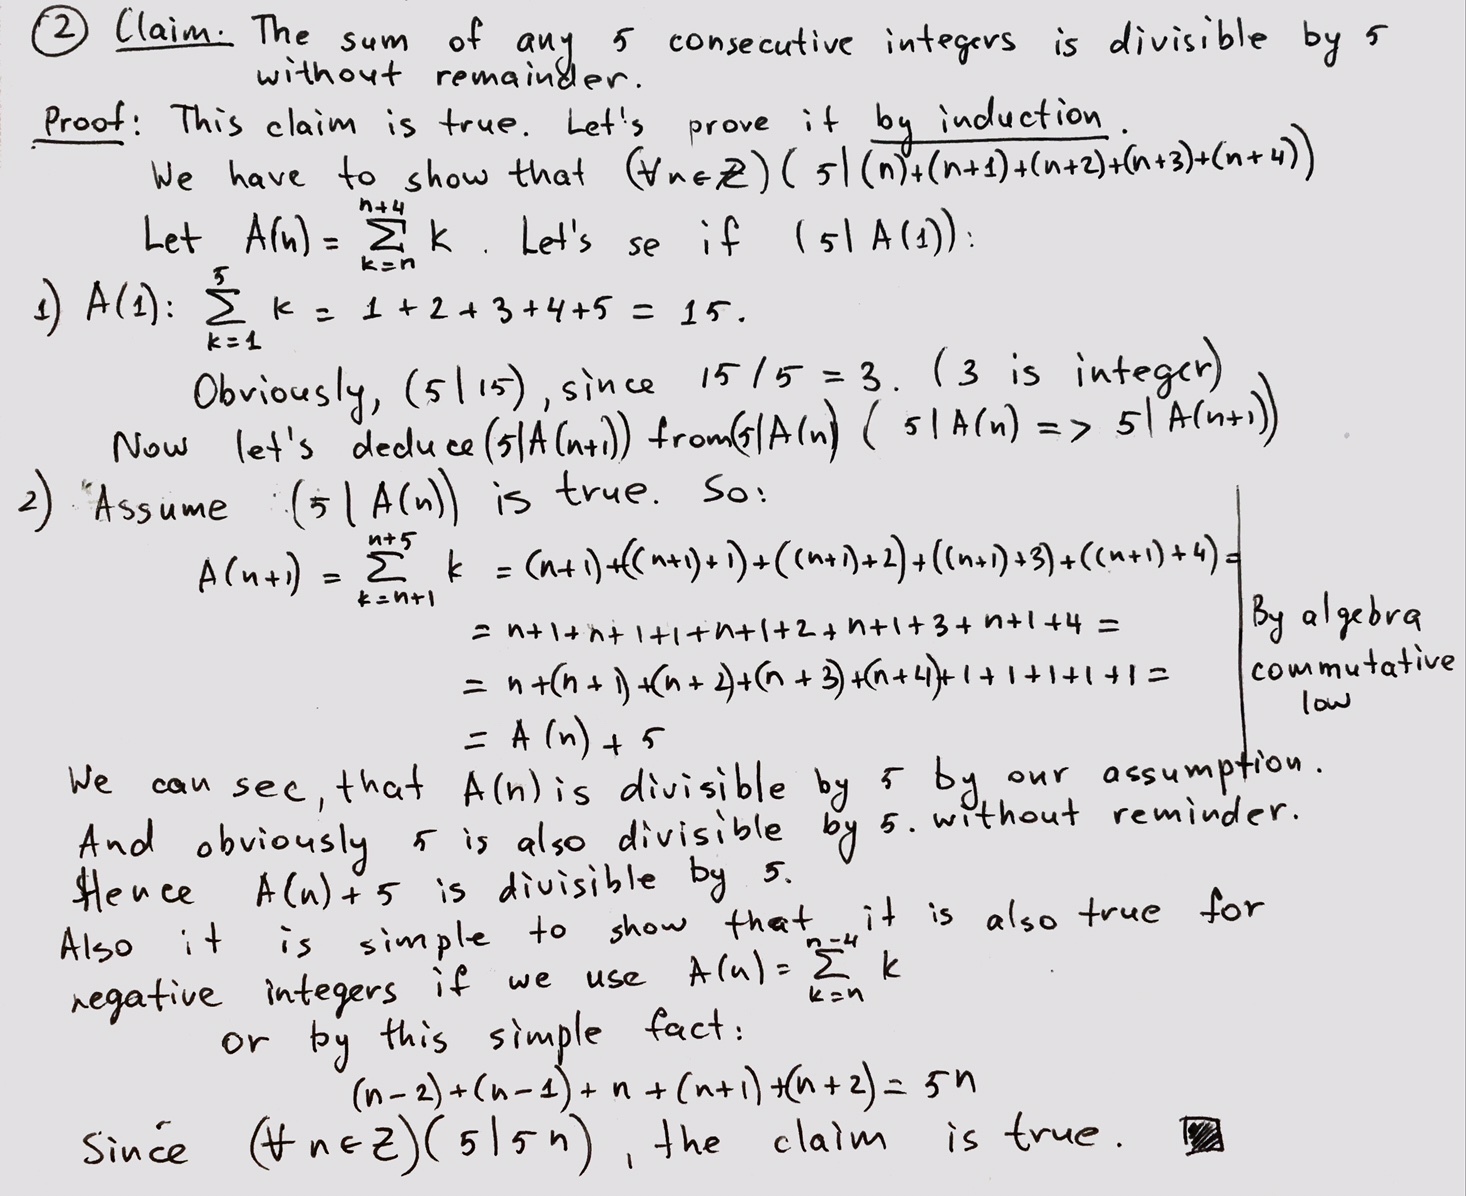 ② Claim. The sum of any 5 consecutive integers is divisible by 5
without remainder.
Proof: This claim is true. Let's prove it by induction.
We have to show that (∀n∈Z)(5|(n)+(n+1)+(n+2)+(n+3)+(n+4))
Let A(n) = \sum_{k=n}^{n+4} k. Let's se if (5|A(1)):
1) A(1): \sum_{k=1}^{5} k = 1+2+3+4+5 = 15.
Obviously, (5|15), since 15/5 = 3. (3 is integer)
Now let's deduce (5|A(n+1)) from (5|A(n) (5|A(n) => 5|A(n+1))
2) "Assume (5|A(n)) is true. So:
A(n+1) = \sum_{k=n+1}^{n+5} k = (n+1)+((n+1)+1)+((n+1)+2)+((n+1)+3)+((n+1)+4)=
= n+1+n+1+1+n+1+2+n+1+3+n+1+4 =
= n+(n+1)+(n+2)+(n+3)+(n+4)+1+1+1+1+1 =
= A(n)+5
By algebra
commutative
low
We can see, that A(n) is divisible by 5 by our assumption.
And obviously 5 is also divisible by 5. without reminder.
Hence A(n)+5 is divisible by 5.
Also it is simple to show that it is also true for
negative integers if we use A(n) = \sum_{k=n}^{n-4} k
or by this simple fact:
(n-2)+(n-1)+n+(n+1)+(n+2)=5n
Since (∀n∈Z)(5|5n), the claim is true. ■